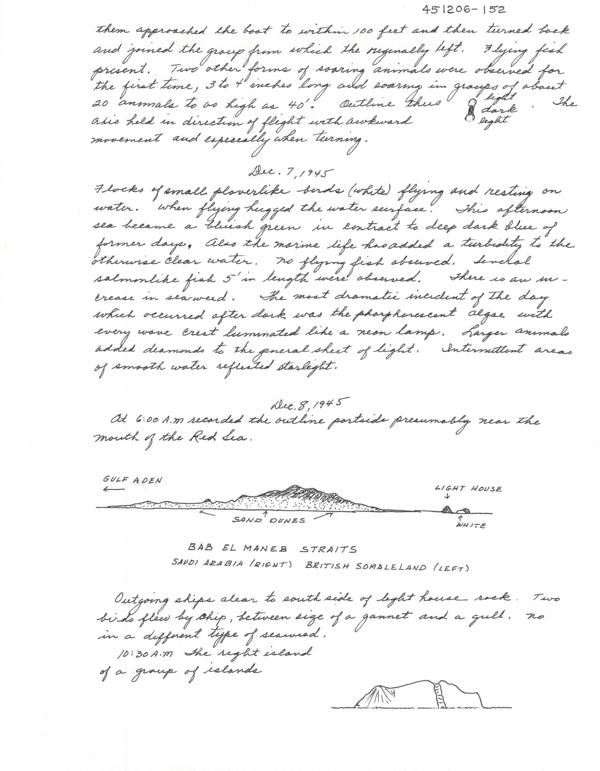 451206-152
them approached the boat to within 100 feet and then turned back
and joined the group from which the originally left. Flying fish
present. Two other forms of soaring animals were observed for
the first time, 3 to 4 inches long and soaring in groups of about
20 animals to as high as 40'. Outline thus light dark light. The
axis held in direction of flight with awkward
movement and especially when turning.
Dec. 7, 1945
Flocks of small ploverlike birds (white) flying and resting on
water. When flying hugged the water surface. This afternoon
sea became a bluish green in contrast to deep dark blue of
former days. Also the marine life has added a turbidity to the
otherwise clear water. No flying fish observed. Several
salmonlike fish 5' in length were observed. There is an in-
crease in seaweed. The most dramatic incident of the day
which occurred after dark was the phosphorescent algae with
every wave crest luminated like a neon lamp. Larger animals
added diamonds to the general sheet of light. Intermittent areas
of smooth water reflected starlight.
Dec. 8, 1945
At 6:00 A.M recorded the outline portside presumably near the
mouth of the Red Sea.
GULF ADEN
LIGHT HOUSE
SAND DUNES
WHITE
BAB EL MANEB STRAITS
SAUDI ARABIA (RIGHT) BRITISH SOMALELAND (LEFT)
Outgoing ships clear to south side of light house rock. Two
birds flew by ship, between size of a gannet and a gull. no
in a different type of seaweed.
10:30 A.M The right island
of a group of islands